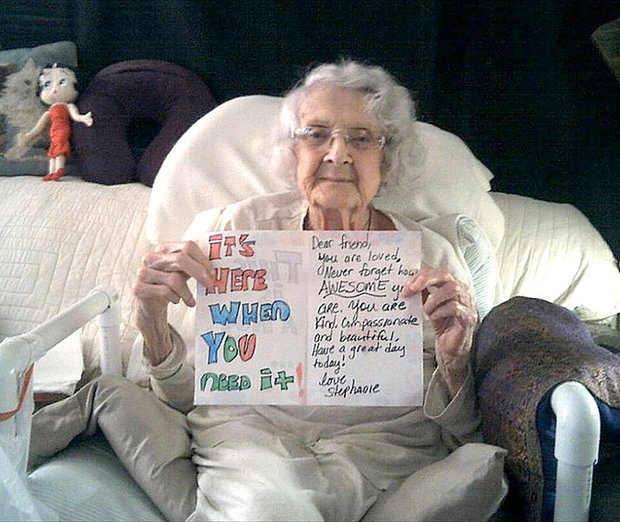 iT'S
HERE
WHEN
YOU
NEED iT!
Dear friend,
you are loved.
Never forget how
AWESOME
are. You are
Kind, Compassionate
and beautiful.
Have a great day
today!
love
Stephanie